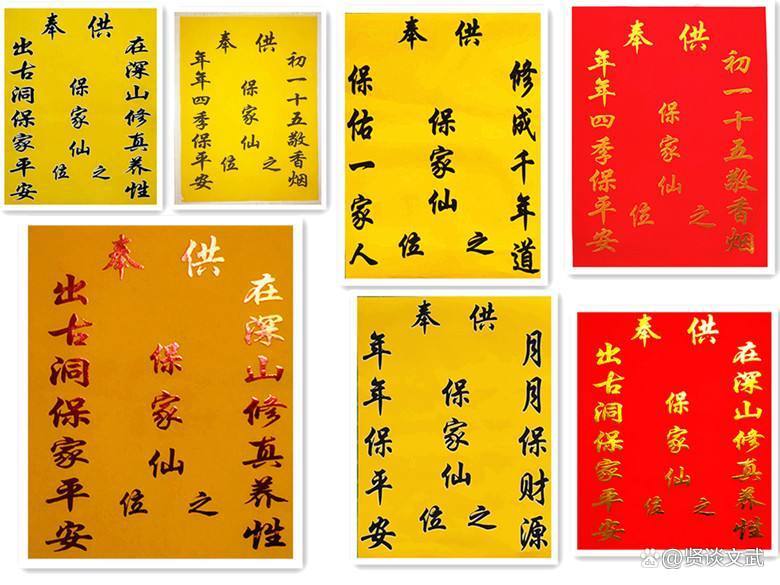 供奉
在深山修真养性
保家仙
之位
出古洞保家平安
供奉
初一十五敬香烟
保家仙
之位
年年四季保平安
供奉
修成千年道
保家仙
之位
保佑一家人
供奉
初一十五敬香烟
保家仙
之位
年年四季保平安
供奉
在深山修真养性
保家仙
之位
出古洞保家平安
供奉
月月保财源
保家仙
之位
年年保平安
供奉
在深山修真养性
保家仙
之位
出古洞保家平安
@贤谈文武